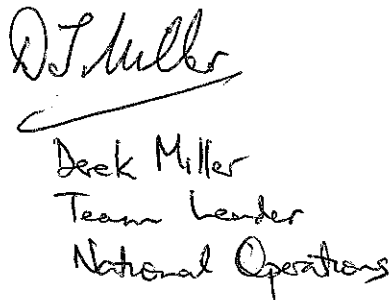 DJ Miller
Derek Miller
Team Leader
National Operations